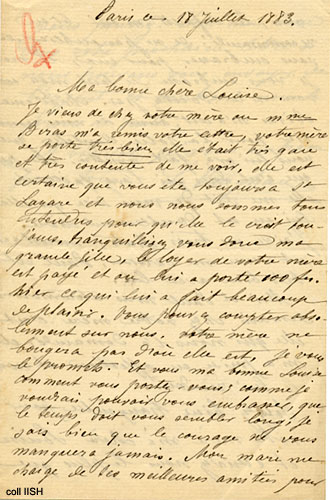 Paris ce 18 juillet 1883.
Ma bonne chère Louise.
Je viens de chez votre mère ou mme
Biras m'a remis votre lettre, votre mère
se porte très bien, elle était très gaie
et très contente de me voir, elle est
certaine que vous ête toujours a St
Lazare et nous nous sommes tous
entendus pour qu'elle le croit tou
jours, tranquillisez vous donc ma
grande fille, le loyer de votre mère
est payé et on lui a porté 100 frs.
hier ce qui lui a fait beaucoup
de plaisir. Vous pouvez compter abso
lument sur nous. votre mère ne
bougera pas d'où elle est, je vous
le promets. Et vous ma bonne Louise
comment vous portez-vous? comme je
voudrais pouvoir vous embrasser, que
le temps doit vous sembler long, je
sais bien que le courage ne vous
manquera jamais. Mon mari me
charge de ses meilleures amitiés pour
coll IISH